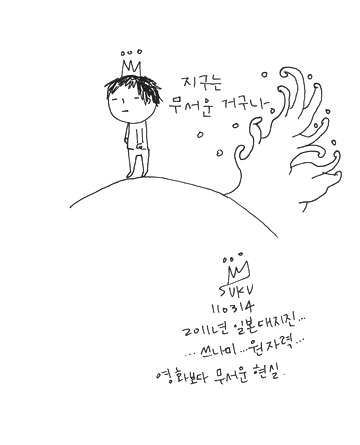 지구는
무서운 거구나.
SUKU
110314
2011년 일본대지진...
...쓰나미...원자력...
영화보다 무서운 현실.